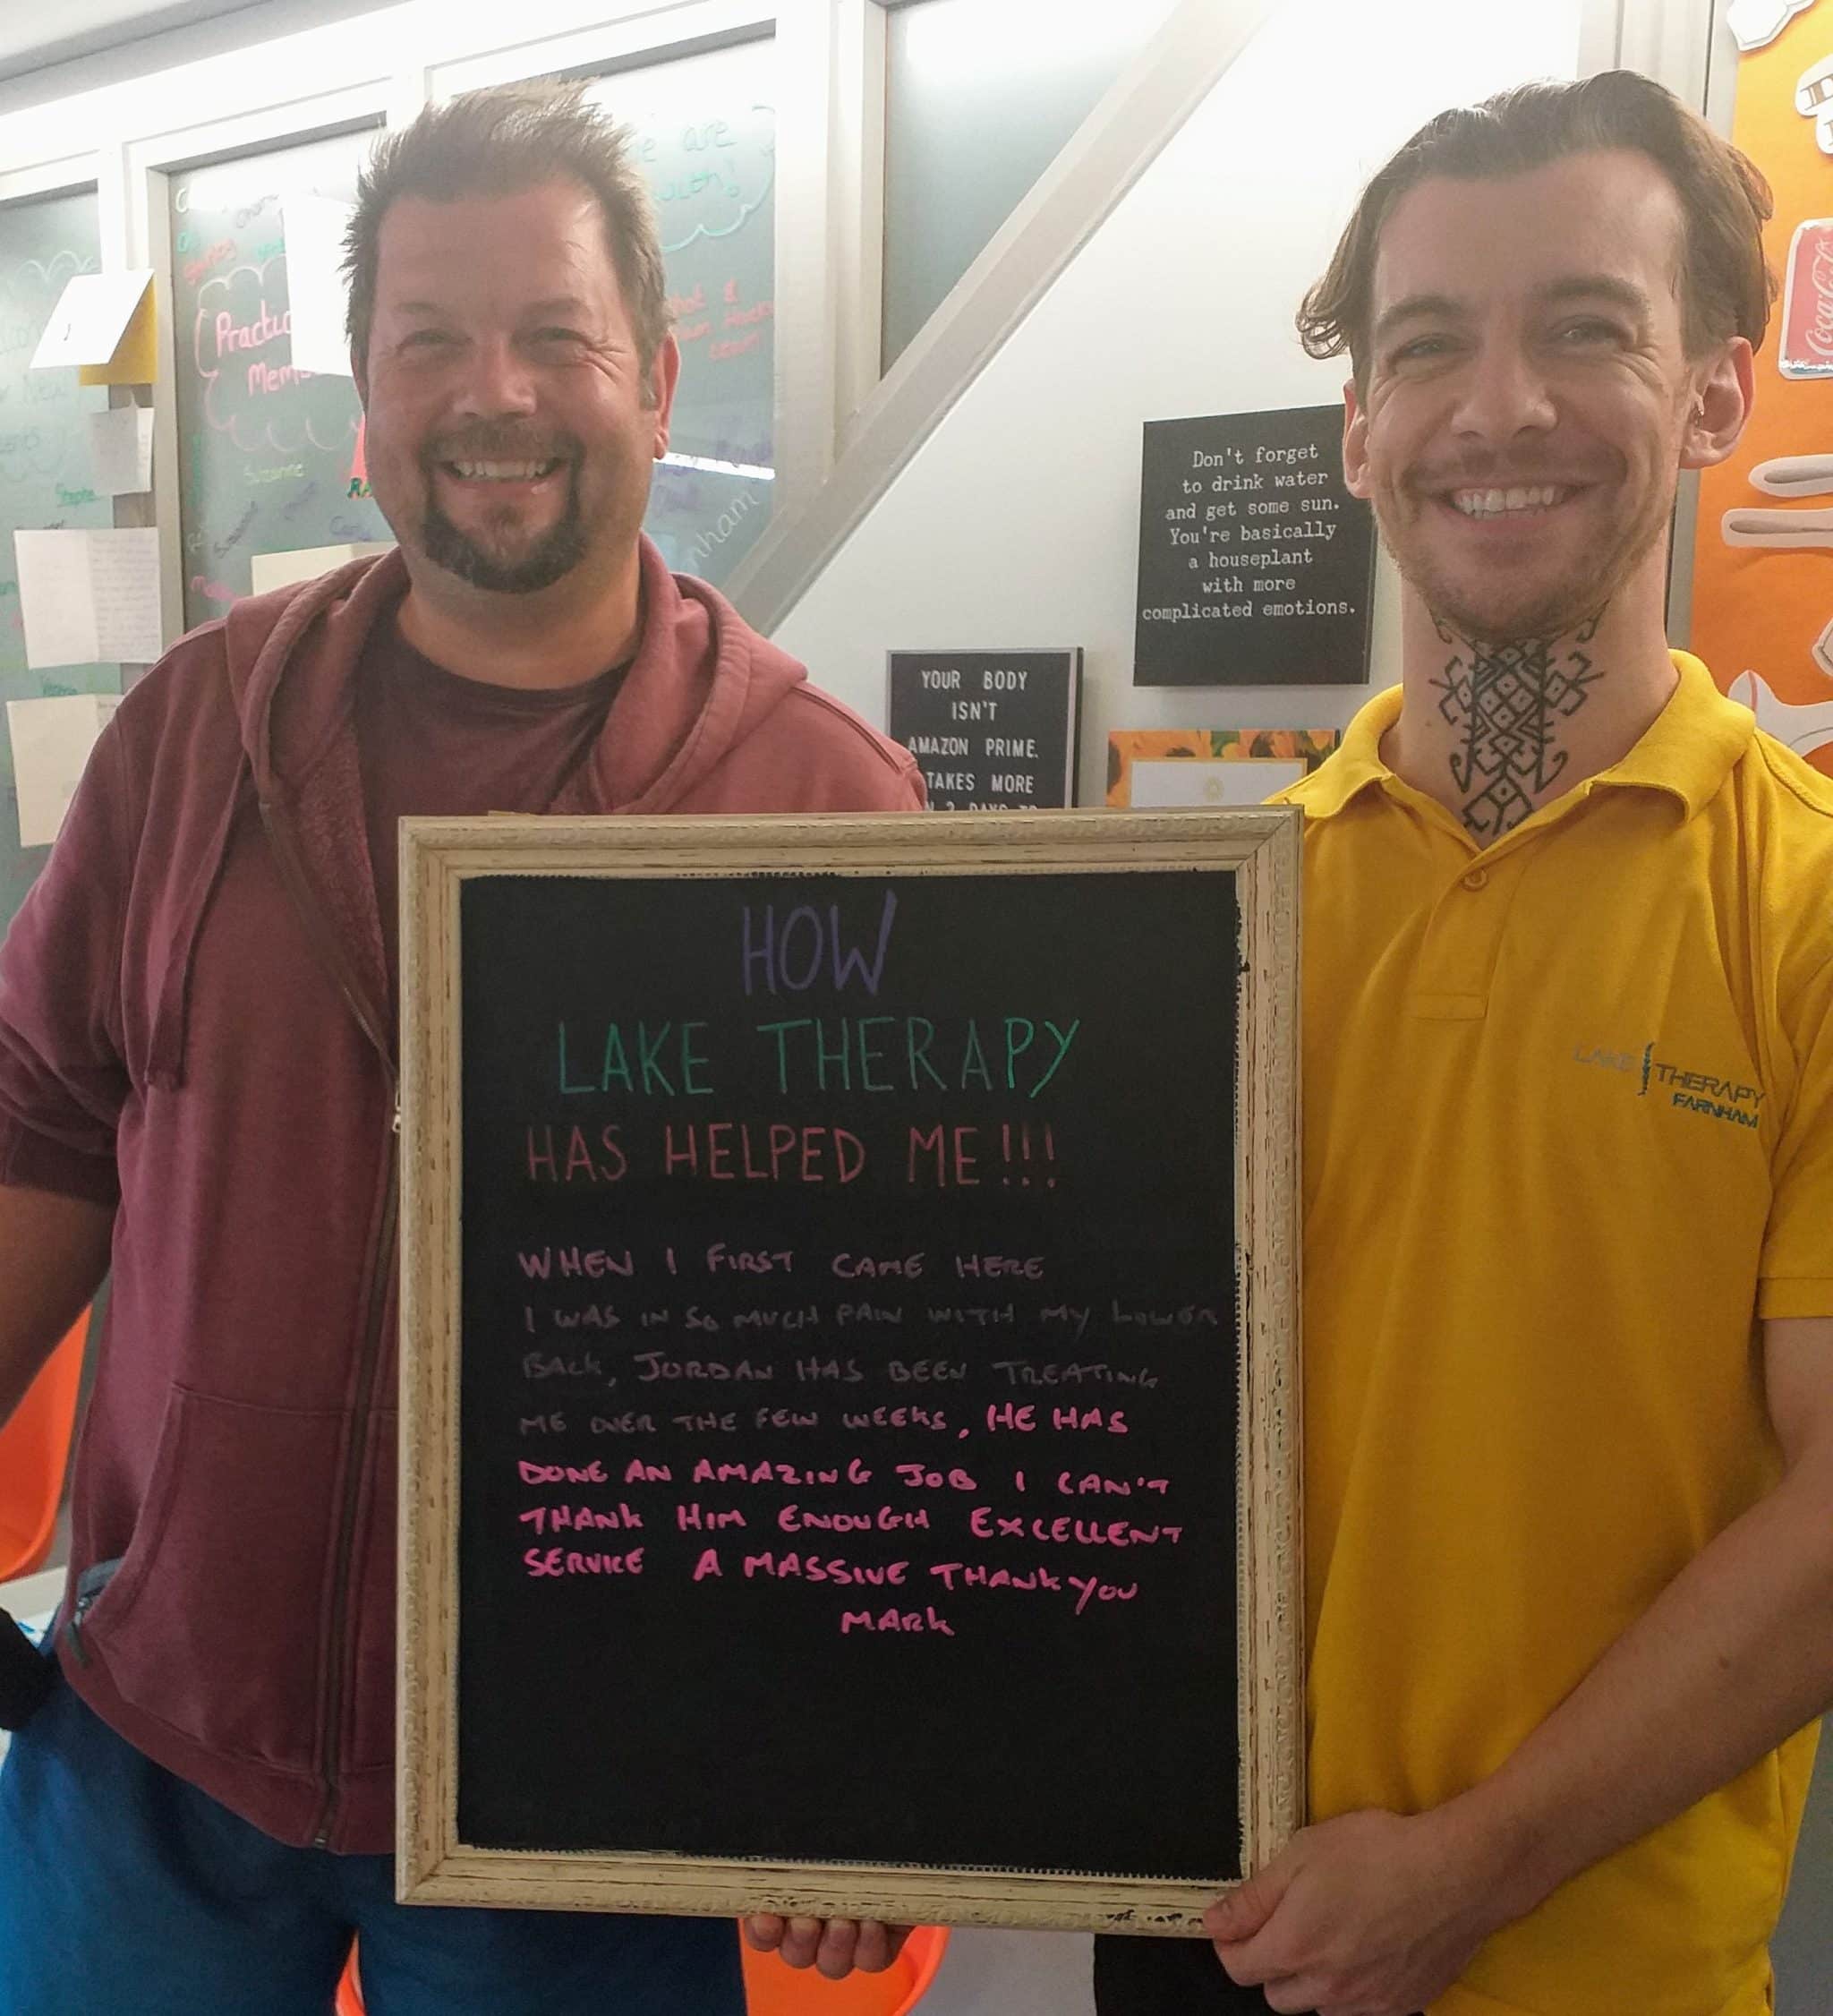 Practic
Mem
Suzanne
nham
Don't forget
to drink water
and get some sun.
You're basically
a houseplant
with more
complicated emotions.
YOUR BODY
ISN'T
AMAZON PRIME.
TAKES MORE
Coca-Cola
HOW
LAKE THERAPY
HAS HELPED ME!!!
WHEN I FIRST CAME HERE
I WAS IN SO MUCH PAIN WITH MY LOWER
BACK, JORDAN HAS BEEN TREATING
ME OVER THE FEW WEEKS, HE HAS
DONE AN AMAZING JOB I CAN'T
THANK HIM ENOUGH EXCELLENT
SERVICE A MASSIVE THANK YOU
MARK
LAKE THERAPY
FARNHAM